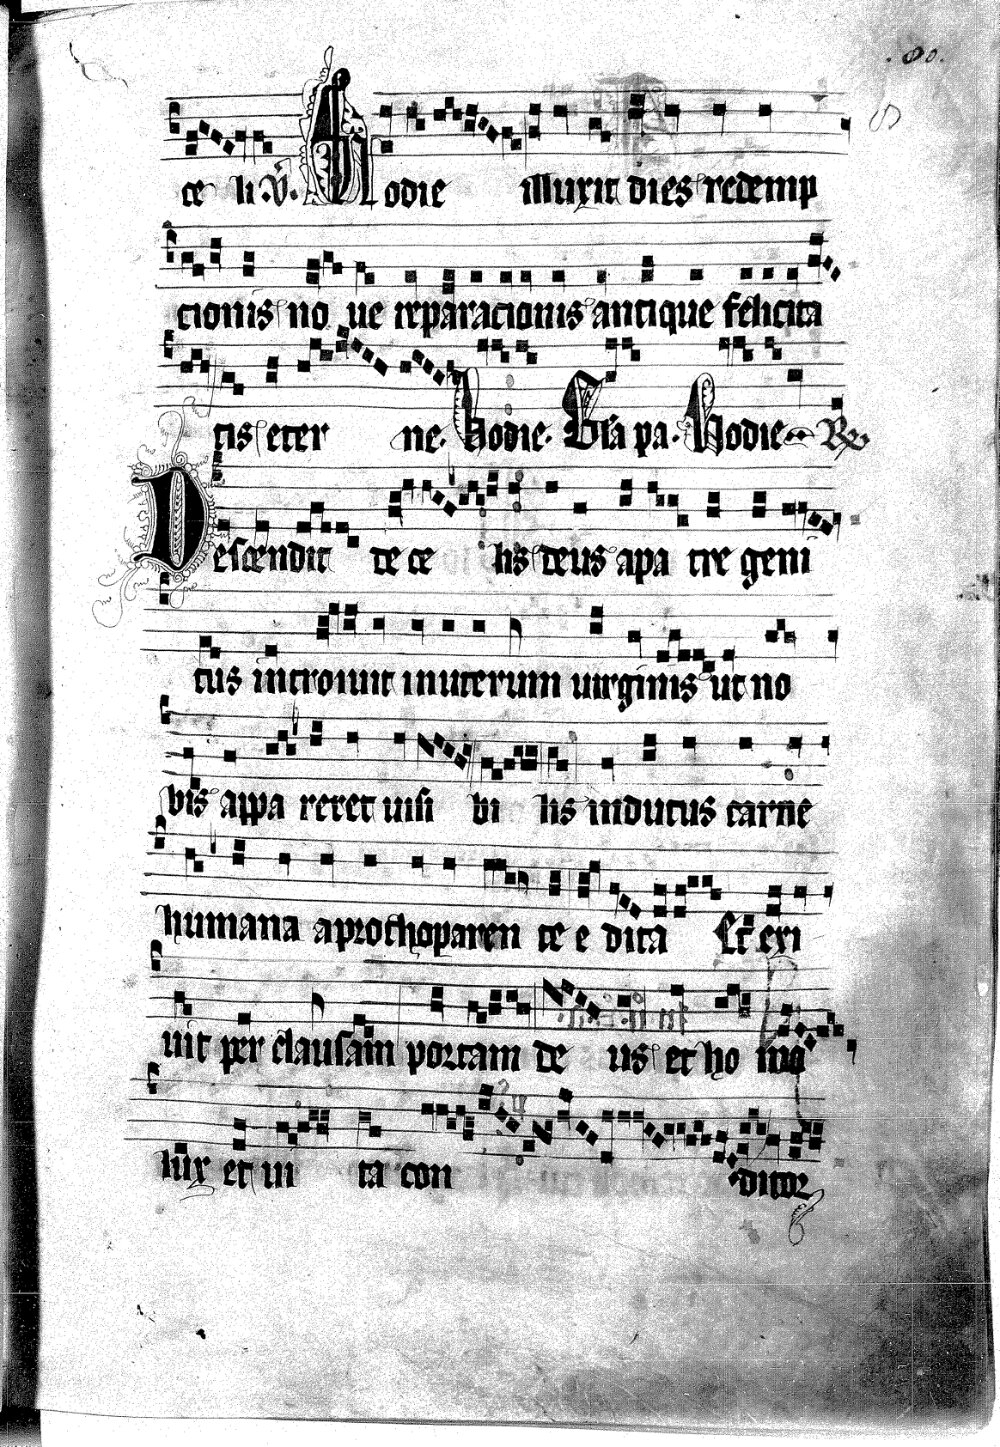 .80.
ce li .V. Hodie illuxit dies redemp
cionis no ue reparacionis antique felicita
tis eter ne. Hodie. Gla pa. Hodie R
Descendit de ce lis deus a pa tre geni
tus introiuit in uterum uirginis ut no
bis appa reret uisi bi lis indutus carne
humana a prothoparen te e dita Et exi
uit per clausam portam de us et ho mo
lux et ui ta con ditor